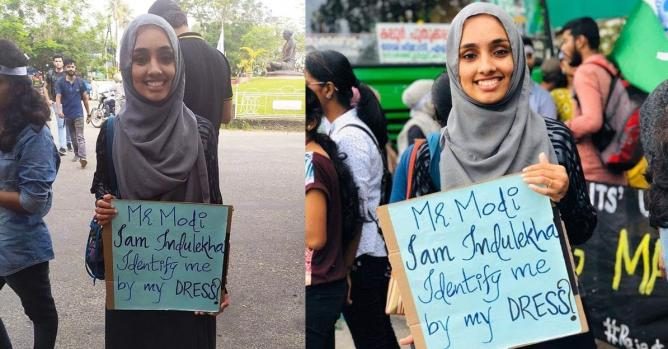 Mr Modi
I am Indulekha
Identify me
by my DRESS?
Mr Modi
I am Indulekha
Identify me
by my DRESS?
MA